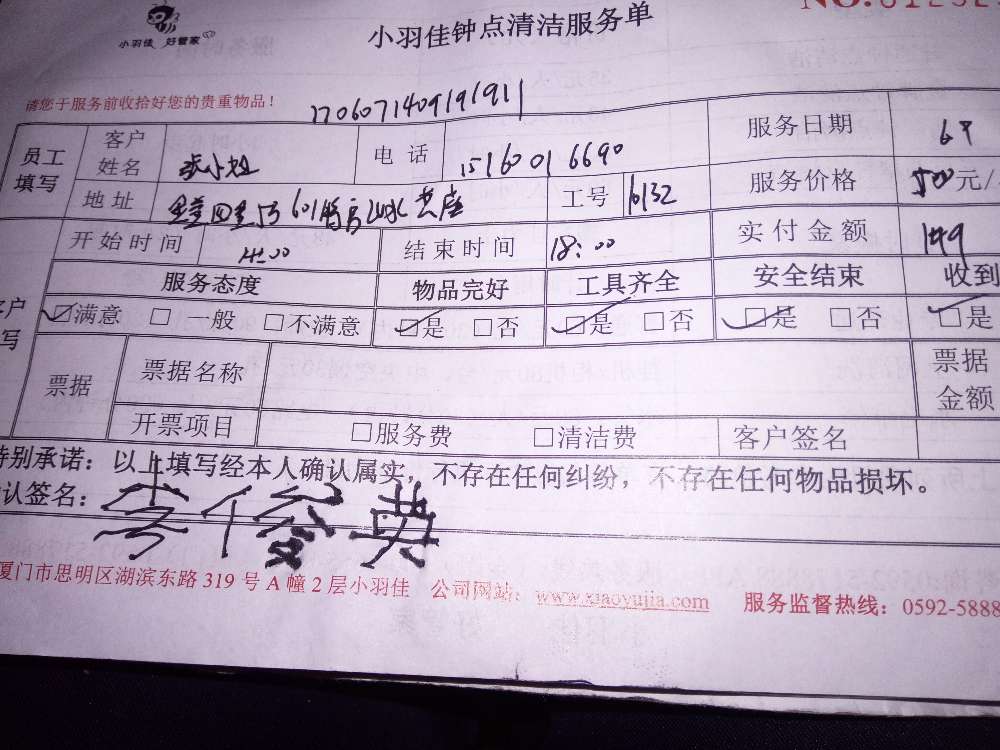 小羽佳 好管家
小羽佳钟点清洁服务单
请您于服务前收拾好您的贵重物品!
1706071409191911
员工填写 客户姓名 张小姐 电话 15160016690 服务日期 6.9
地址 601 山水 工号 6132 服务价格 元/
开始时间 14:00 结束时间 18:00 实付金额 149
服务态度 物品完好 工具齐全 安全结束 收到
☑满意 □一般 □不满意 ☑是 □否 ☑是 □否 ☑是 □否 ☑是
票据 票据名称 票据金额
开票项目 □服务费 □清洁费 客户签名
特别承诺：以上填写经本人确认属实，不存在任何纠纷，不存在任何物品损坏。
认签名：
厦门市思明区湖滨东路 319 号 A 幢 2 层小羽佳 公司网站：www.xiaoyujia.com 服务监督热线：0592-5888